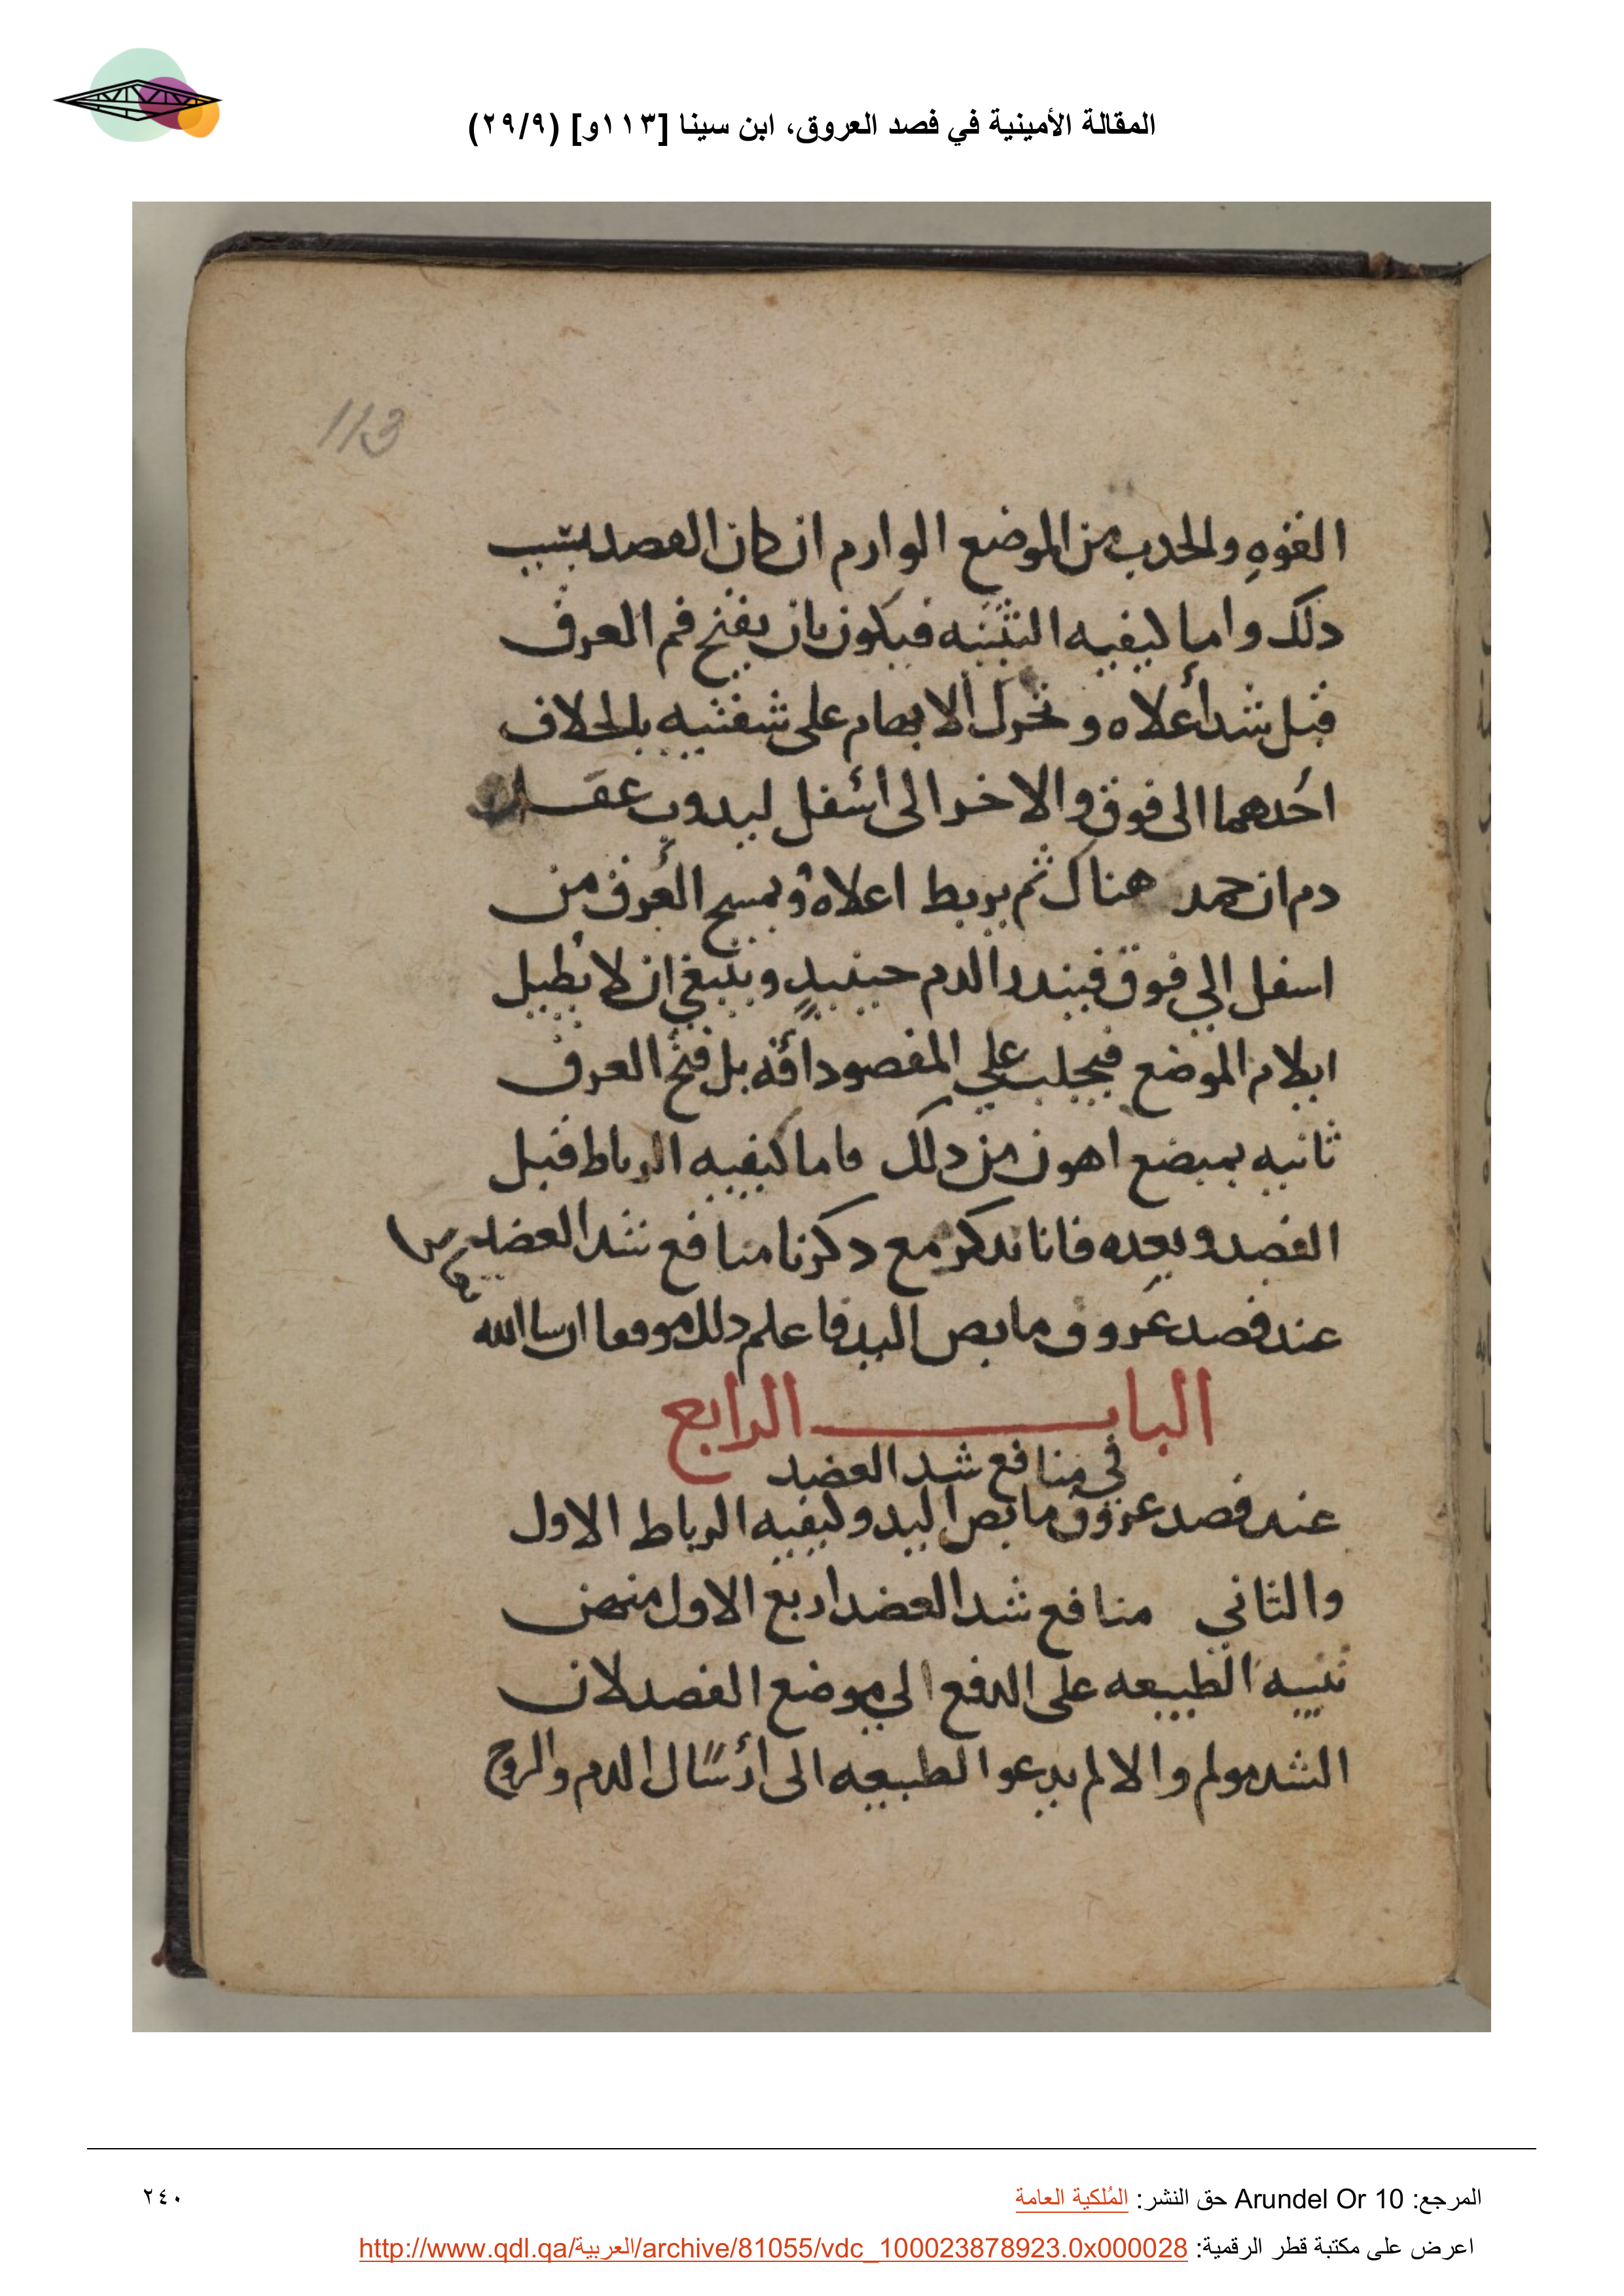 المقالة الأمينية في فصد العروق، ابن سينا [١١٣و] (٢٩/٩)
113
الفوه والجدب من الموضع الوارم ان كان الفصد بسبب
دلك واما كيفيه التثنيه فيكون بان يفتح فم العرق
قبل شد أعلاه و تحرك الابهام على شفتيه بالخلاف
احدهما الى فوق والاخر الى اسفل ليدوب
دم ان جمد هناك ثم يربط اعلاه ويمسح العرق من
اسفل الي فوق فيندر الدم حينيدٍ وينبغي ان لا يطيل
ايلام الموضع فيجلب علي المفصود آفة بل فتح العرق
ثانيه بمبضع اهون من دلك فاما كيفيه الرباط قبل
الفصد وبعده فانا ندكر مع دكرنا منافع شد العضد
عند فصد عروق مابض اليد فاعلم دلك موفقا ان سا الله
الباب الرابع
في منافع شد العضد
عند فصد عروق مابض اليد وكيفيه الرباط الاول
والثاني منافع شد العضد اربع الاول منهن
تنبيه الطبيعه على الدفع الي موضع الفصد لان
الشد مولم والالم يدعو الطبيعه الى ارسال الدم والروح
المرجع: Arundel Or 10 حق النشر: المُلكية العامة
٢٤٠
اعرض على مكتبة قطر الرقمية: http://www.qdl.qa/العربية/archive/81055/vdc_100023878923.0x000028